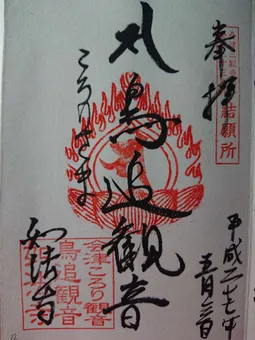 奉拝
結願所
平成二七年
五月
鳥追觀音
ころりさま
如法寺
会津ころり観音
鳥追観音